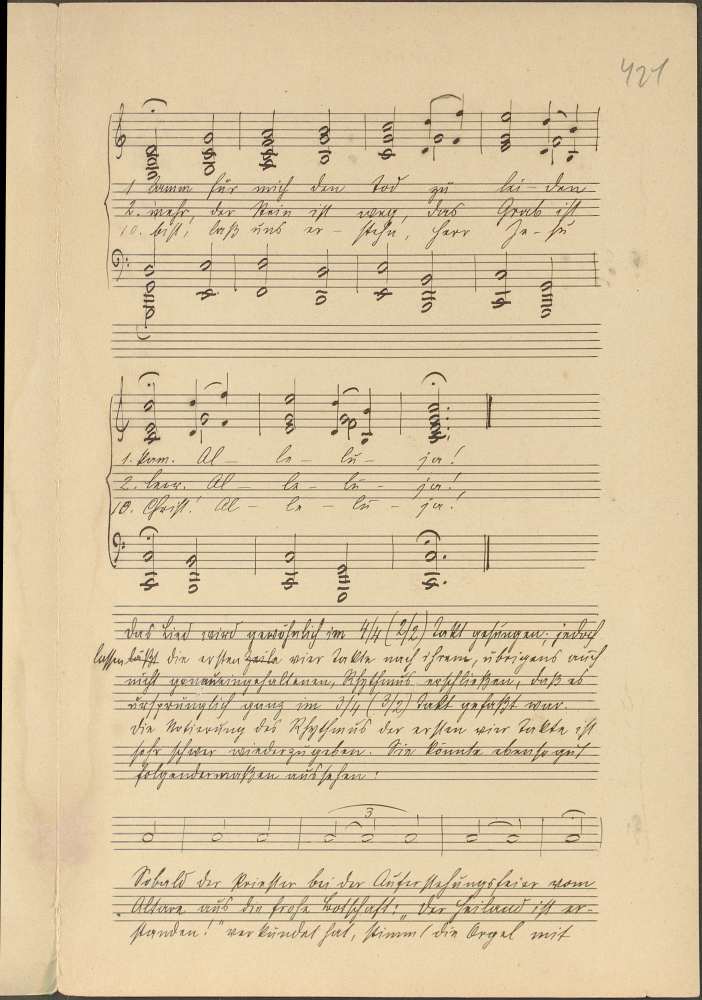 421
1. Lamm für mich den Tod zu lei - den
2. mehr, der Stein ist weg, das Grab ist
10. bist, laß uns er - stehn, Herr Je - su
1. kam. Al - le - lu - ja!
2. leer. Al - le - lu - ja!
10. Christ! Al - le - lu - ja!
Das Lied wird gewöhnlich im 4/4 (2/2) Takt gesungen; jedoch
lassen läßt die ersten Zeile vier Takte nach ihrem, übrigens auch
nicht genau eingehaltenen, Rhythmus erschließen, daß es
ursprünglich ganz im 3/4 (3/2) Takt gefaßt war.
Die Notierung des Rhythmus der ersten vier Takte ist
sehr schwer wiederzugeben. Sie könnte ebenso gut
folgendermaßen aussehen:
3
Sobald der Priester bei der Auferstehungsfeier vom
Altare aus die frohe Botschaft: „Der Heiland ist er-
standen!" verkündet hat, stimmt die Orgel mit